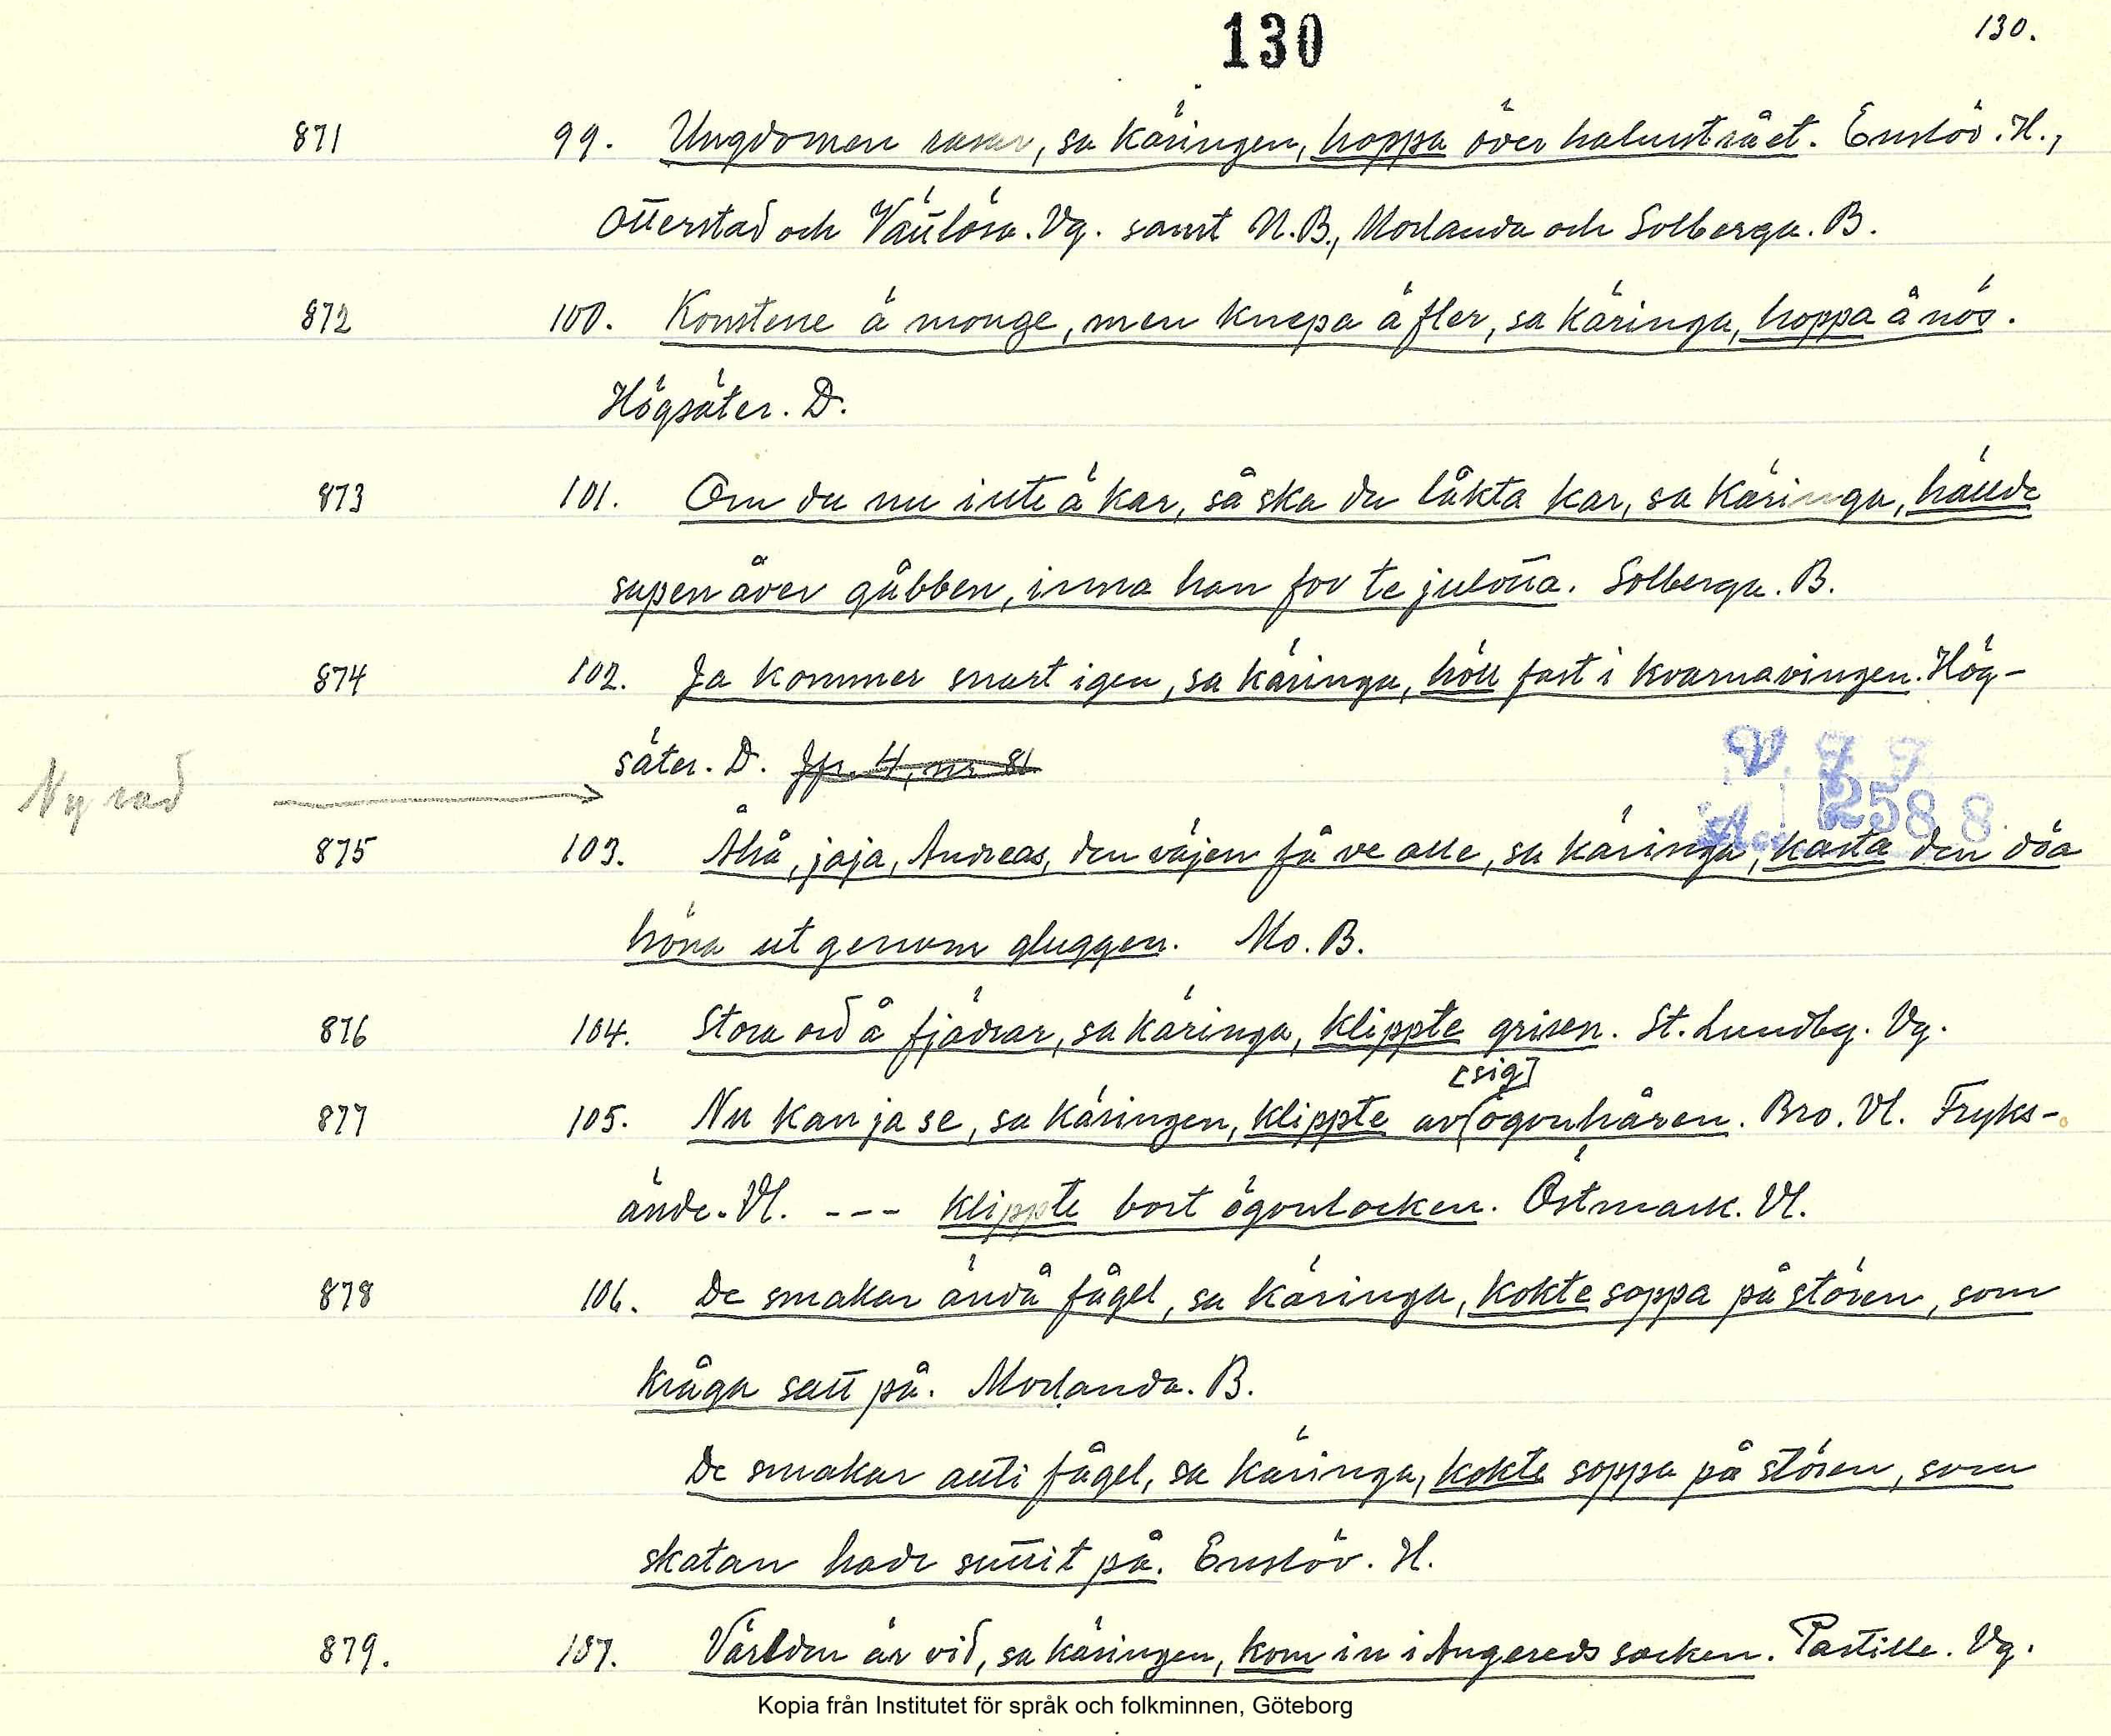 130
130.
871 99. Ungdomen rasar, sa käringen, hoppa över halmstrået. Enslöv. H.,
Otterstad och Vättlösa. Vg. samt N.B., Morlanda och Solberga. B.
872 100. Konstene ä monge, men knepa ä fler, sa käringa, hoppa å nös.
Högsäter. D.
873 101. Om du nu inte ä kar, så ska du låkta kar, sa käringa, hällde
supen åver gubben, inna han for te julotta. Solberga. B.
874 102. Ja kommer snart igen, sa käringa, höll fast i kvarnavingen. Hög-
säter. D. Jfr. 4, nr 81
Ny rad
V F F
Acc 2588
875 103. Åhå, jaja, Andreas, den väjen få ve alle, sa käringa, kasta den döa
höna ut genom gluggen. Mo. B.
876 104. Stora ord å fjädrar, sa käringa, klippte grisen. St. Lundby. Vg.
877 105. Nu kan ja se, sa käringen, klippte av [sig] ögonhåren. Bro. Vl. Fryks-
ände. Vl. --- klippte bort ögonlocken. Östmark. Vl.
878 106. De smakar ändå fågel, sa käringa, kokte soppa på stören, som
kråga satt på. Morlanda. B.
De smakar allti fågel, sa käringa, kokte soppa på stören, som
skatan hade suttit på. Enslöv. H.
879. 107. Världen är vid, sa käringen, kom in i Angereds socken. Partille. Vg.
Kopia från Institutet för språk och folkminnen, Göteborg